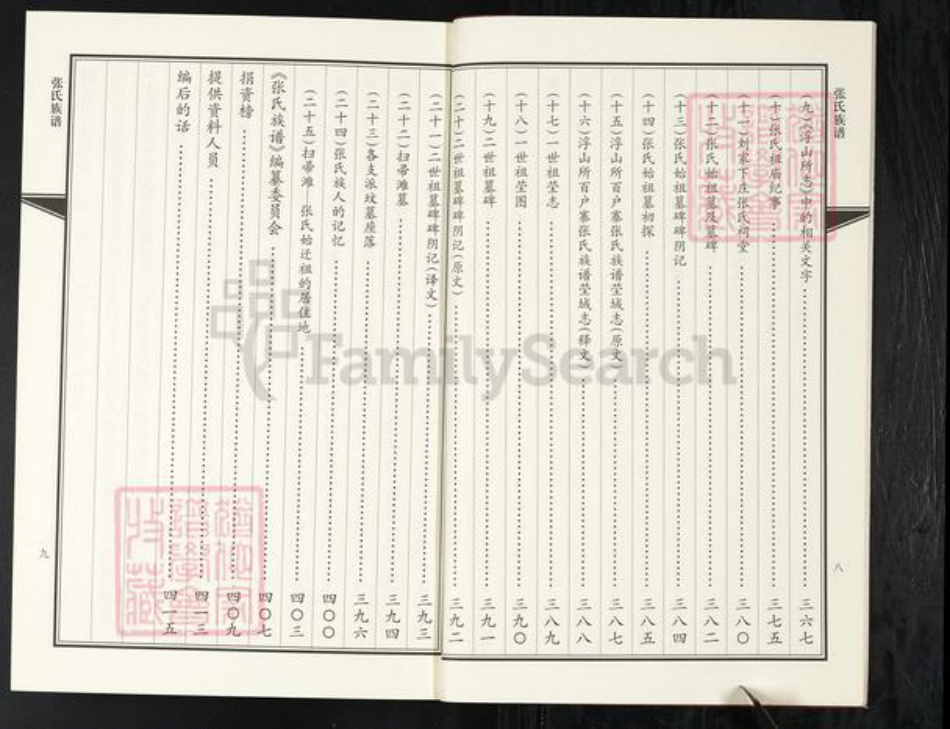 张氏族谱
(九)《浮山所志》中的相关文字……三六七
(十)张氏祖庙纪事……三七五
(十一)刘家下庄张氏祠堂……三八〇
(十二)张氏始祖墓及墓碑……三八二
(十三)张氏始祖墓碑碑阴记……三八四
(十四)张氏始祖墓初探……三八五
(十五)浮山所百户寨张氏族谱茔城志(原文)……三八七
(十六)浮山所百户寨张氏族谱茔城志(释文)……三八八
(十七)一世祖茔志……三八九
(十八)一世祖茔图……三九〇
(十九)二世祖墓碑……三九一
(二十)二世祖墓碑碑阴记(原文)……三九二
八
(二十一)二世祖墓碑碑阴记(译文)……三九三
(二十二)扫帚滩墓……三九四
(二十三)各支派坟墓座落……三九六
(二十四)张氏族人的记忆……四〇〇
(二十五)扫帚滩 张氏始迁祖的居住地……四〇三
《张氏族谱》编纂委员会……四〇七
捐资榜……四〇九
提供资料人员……四一三
编后的话……四一五
张氏族谱
九
FamilySearch